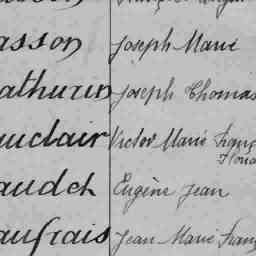 asson Joseph Marie
athurin Joseph Thomas
auclair Victor Marie Franç
audch Eugène Jean
aufrais Jean Marie Franç